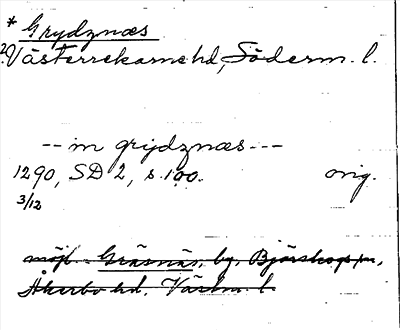 * Grydznæs
? Västerrekarne hd, Söderm. l.
-- in grijdznæs ---
1290, SD 2, s. 100. orig.
3/12
möjl. Gräsnäs, by, Björskogs sn,
Åkerbo hd, Västm. l.